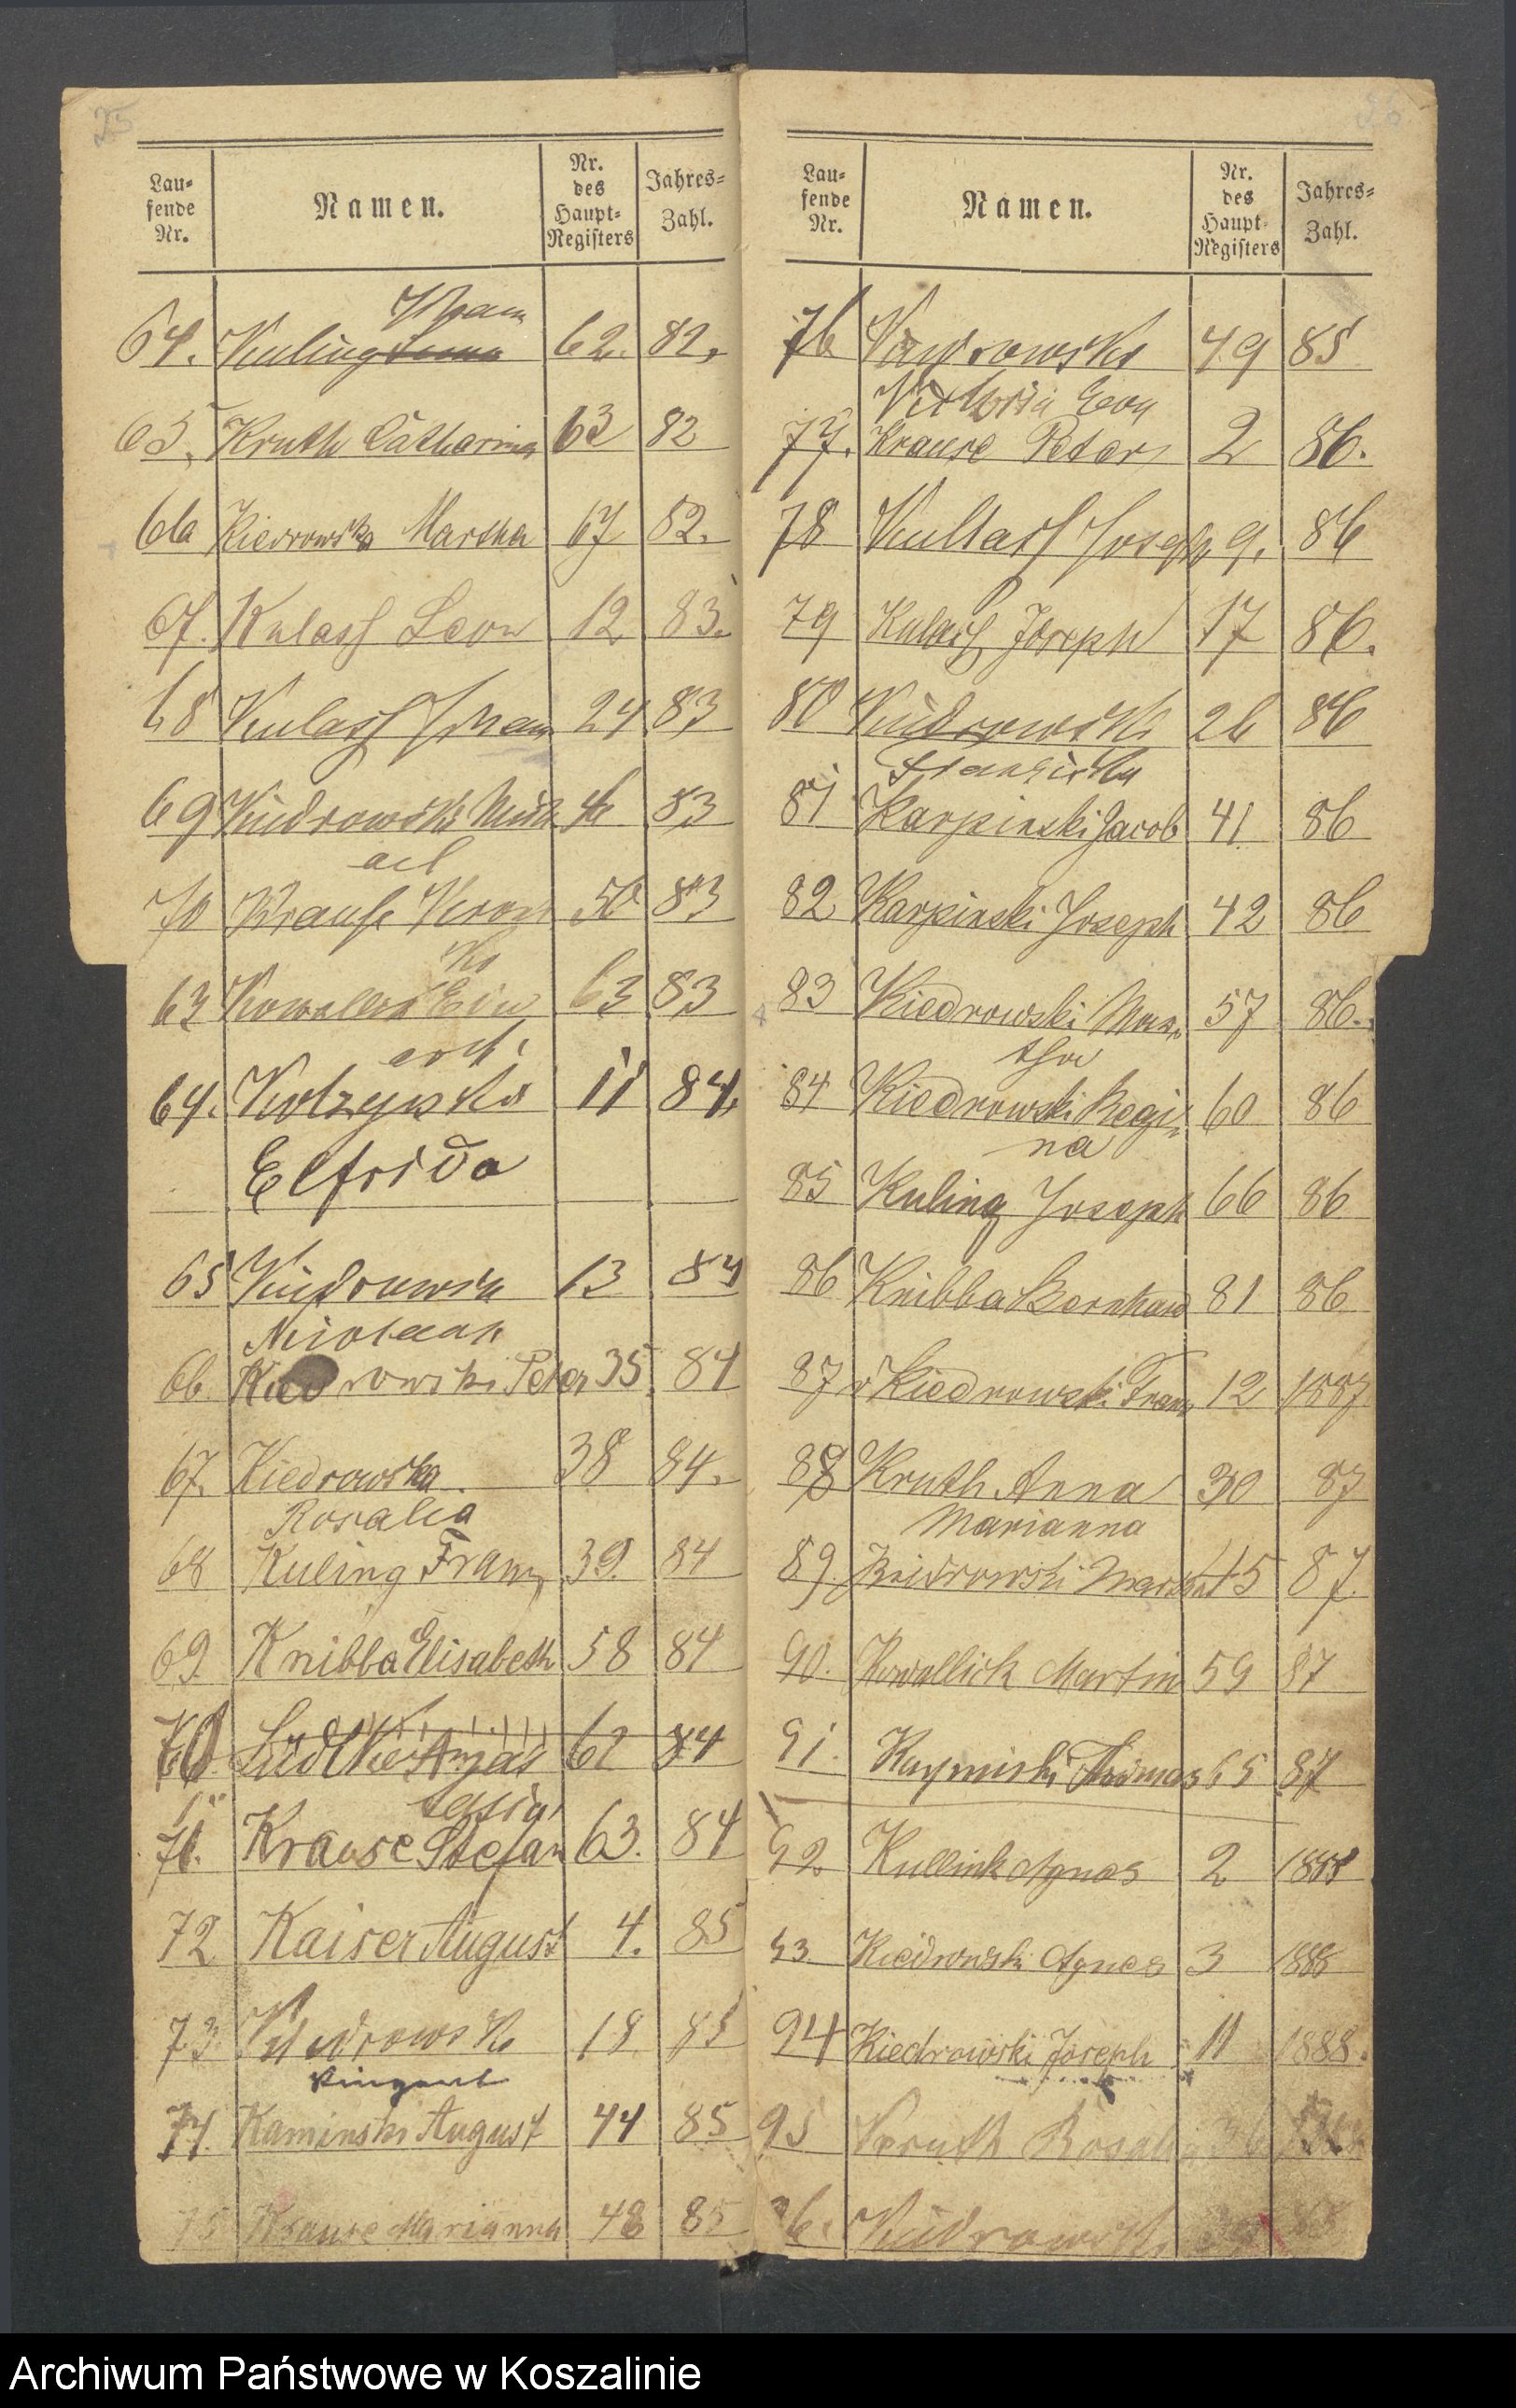 25
Lau-
fende
Nr.
Namen.
Nr.
des
Haupt-
Registers
Jahres-
Zahl.
64. Kuling Johann 62. 82.
65. Kruth Catharina 63 82
66 Kiedrowski Martha 67 82.
67. Kulass Leon 12 83.
68 Kulass Johann 24 83
69 Kiedrowski Mich 46 83
ael
70 Krause 50 83
63 63 83
64. 11 84.
Elfrida
65 13 84
Nicolaus
66. Kiedrowski Peter 35. 84
67. Kiedrowska 38 84.
Rosalia
68 Kuling Franz 39. 84
69. Knibba Elisabeth 58 84
70 62 84
71. Krause Stefan 63. 84
72 Kaiser August 4. 85
73. Kiedrowski 18 85
Vinzent
74. Kaminski August 44 85
75 Krause Marianna 48 85
26
Lau-
fende
Nr.
Namen.
Nr.
des
Haupt-
Registers
Jahres-
Zahl.
76 49 85
Viktoria Eva
77. Krause Peter 2 86.
78 Joseph 9. 86
79 Kulass Joseph 17 86.
80 Kiedrowski 26 86
Franziska
81 Karpinski Jacob 41 86
82 Karpinski Joseph 42 86
83 Kiedrowski Mar- 57 86.
tha
84 Kiedrowski Regi- 60 86
na
85 Kuling Joseph 66 86
86 Knibba Bernhard 81 86
87 v Kiedrowski Franz 12 1887
88 Kruth Anna 30 87
Marianna
89. Kiedrowski 45 87.
90. Kowallick Martin 59 87
91. 65 87
92 Kullick Agnes 2 1888
93 Kiedrowski Agnes 3 1888
94 Kiedrowski Joseph 11 1888.
95 Kruth Rosalia 36
96. Kiedrowski
Archiwum Państwowe w Koszalinie